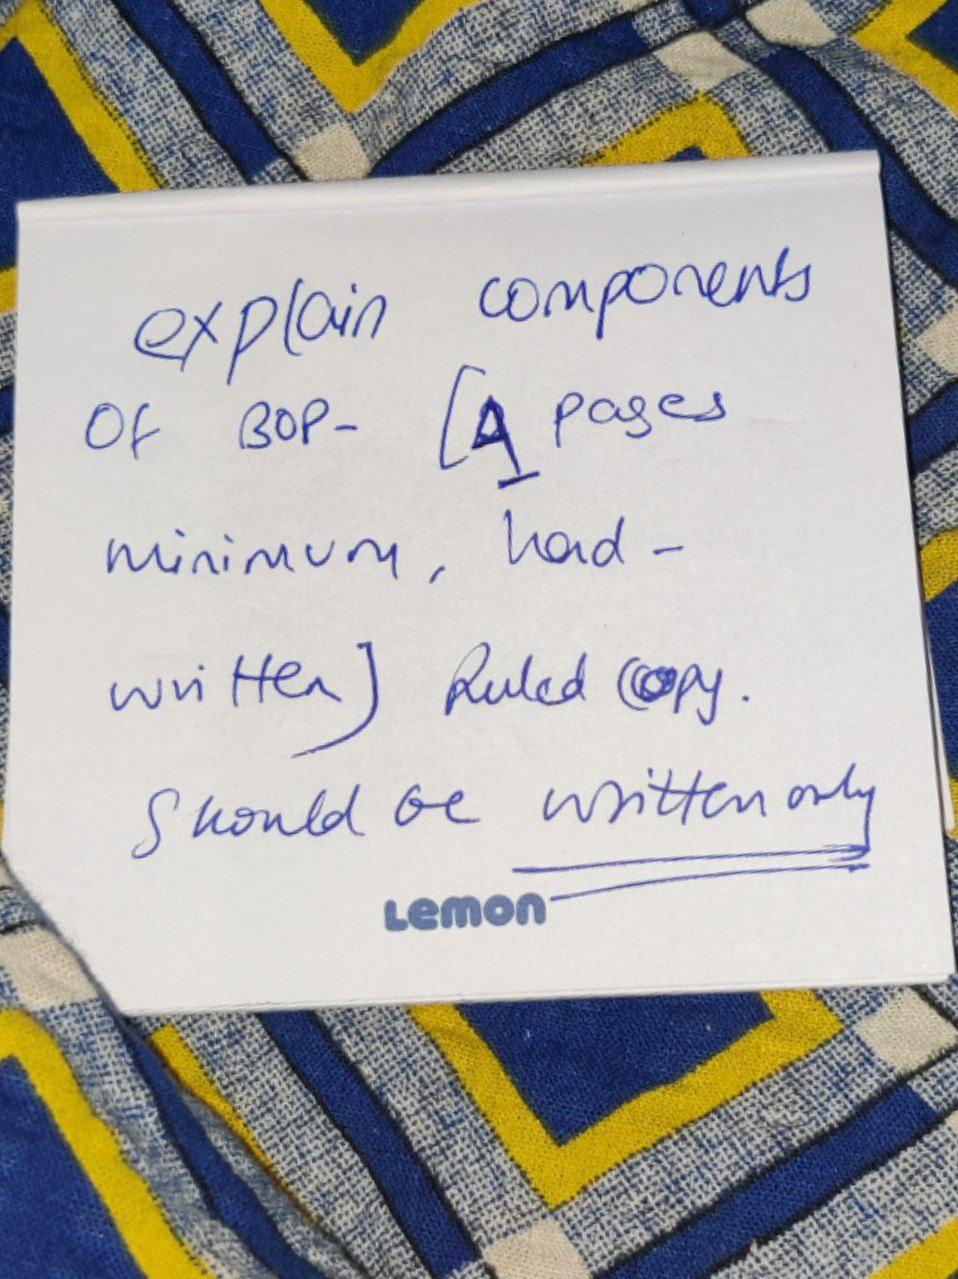 explain components
Of BOP- [4 pages
minimum, hand-
written] Ruled copy.
Should be written only
Lemon